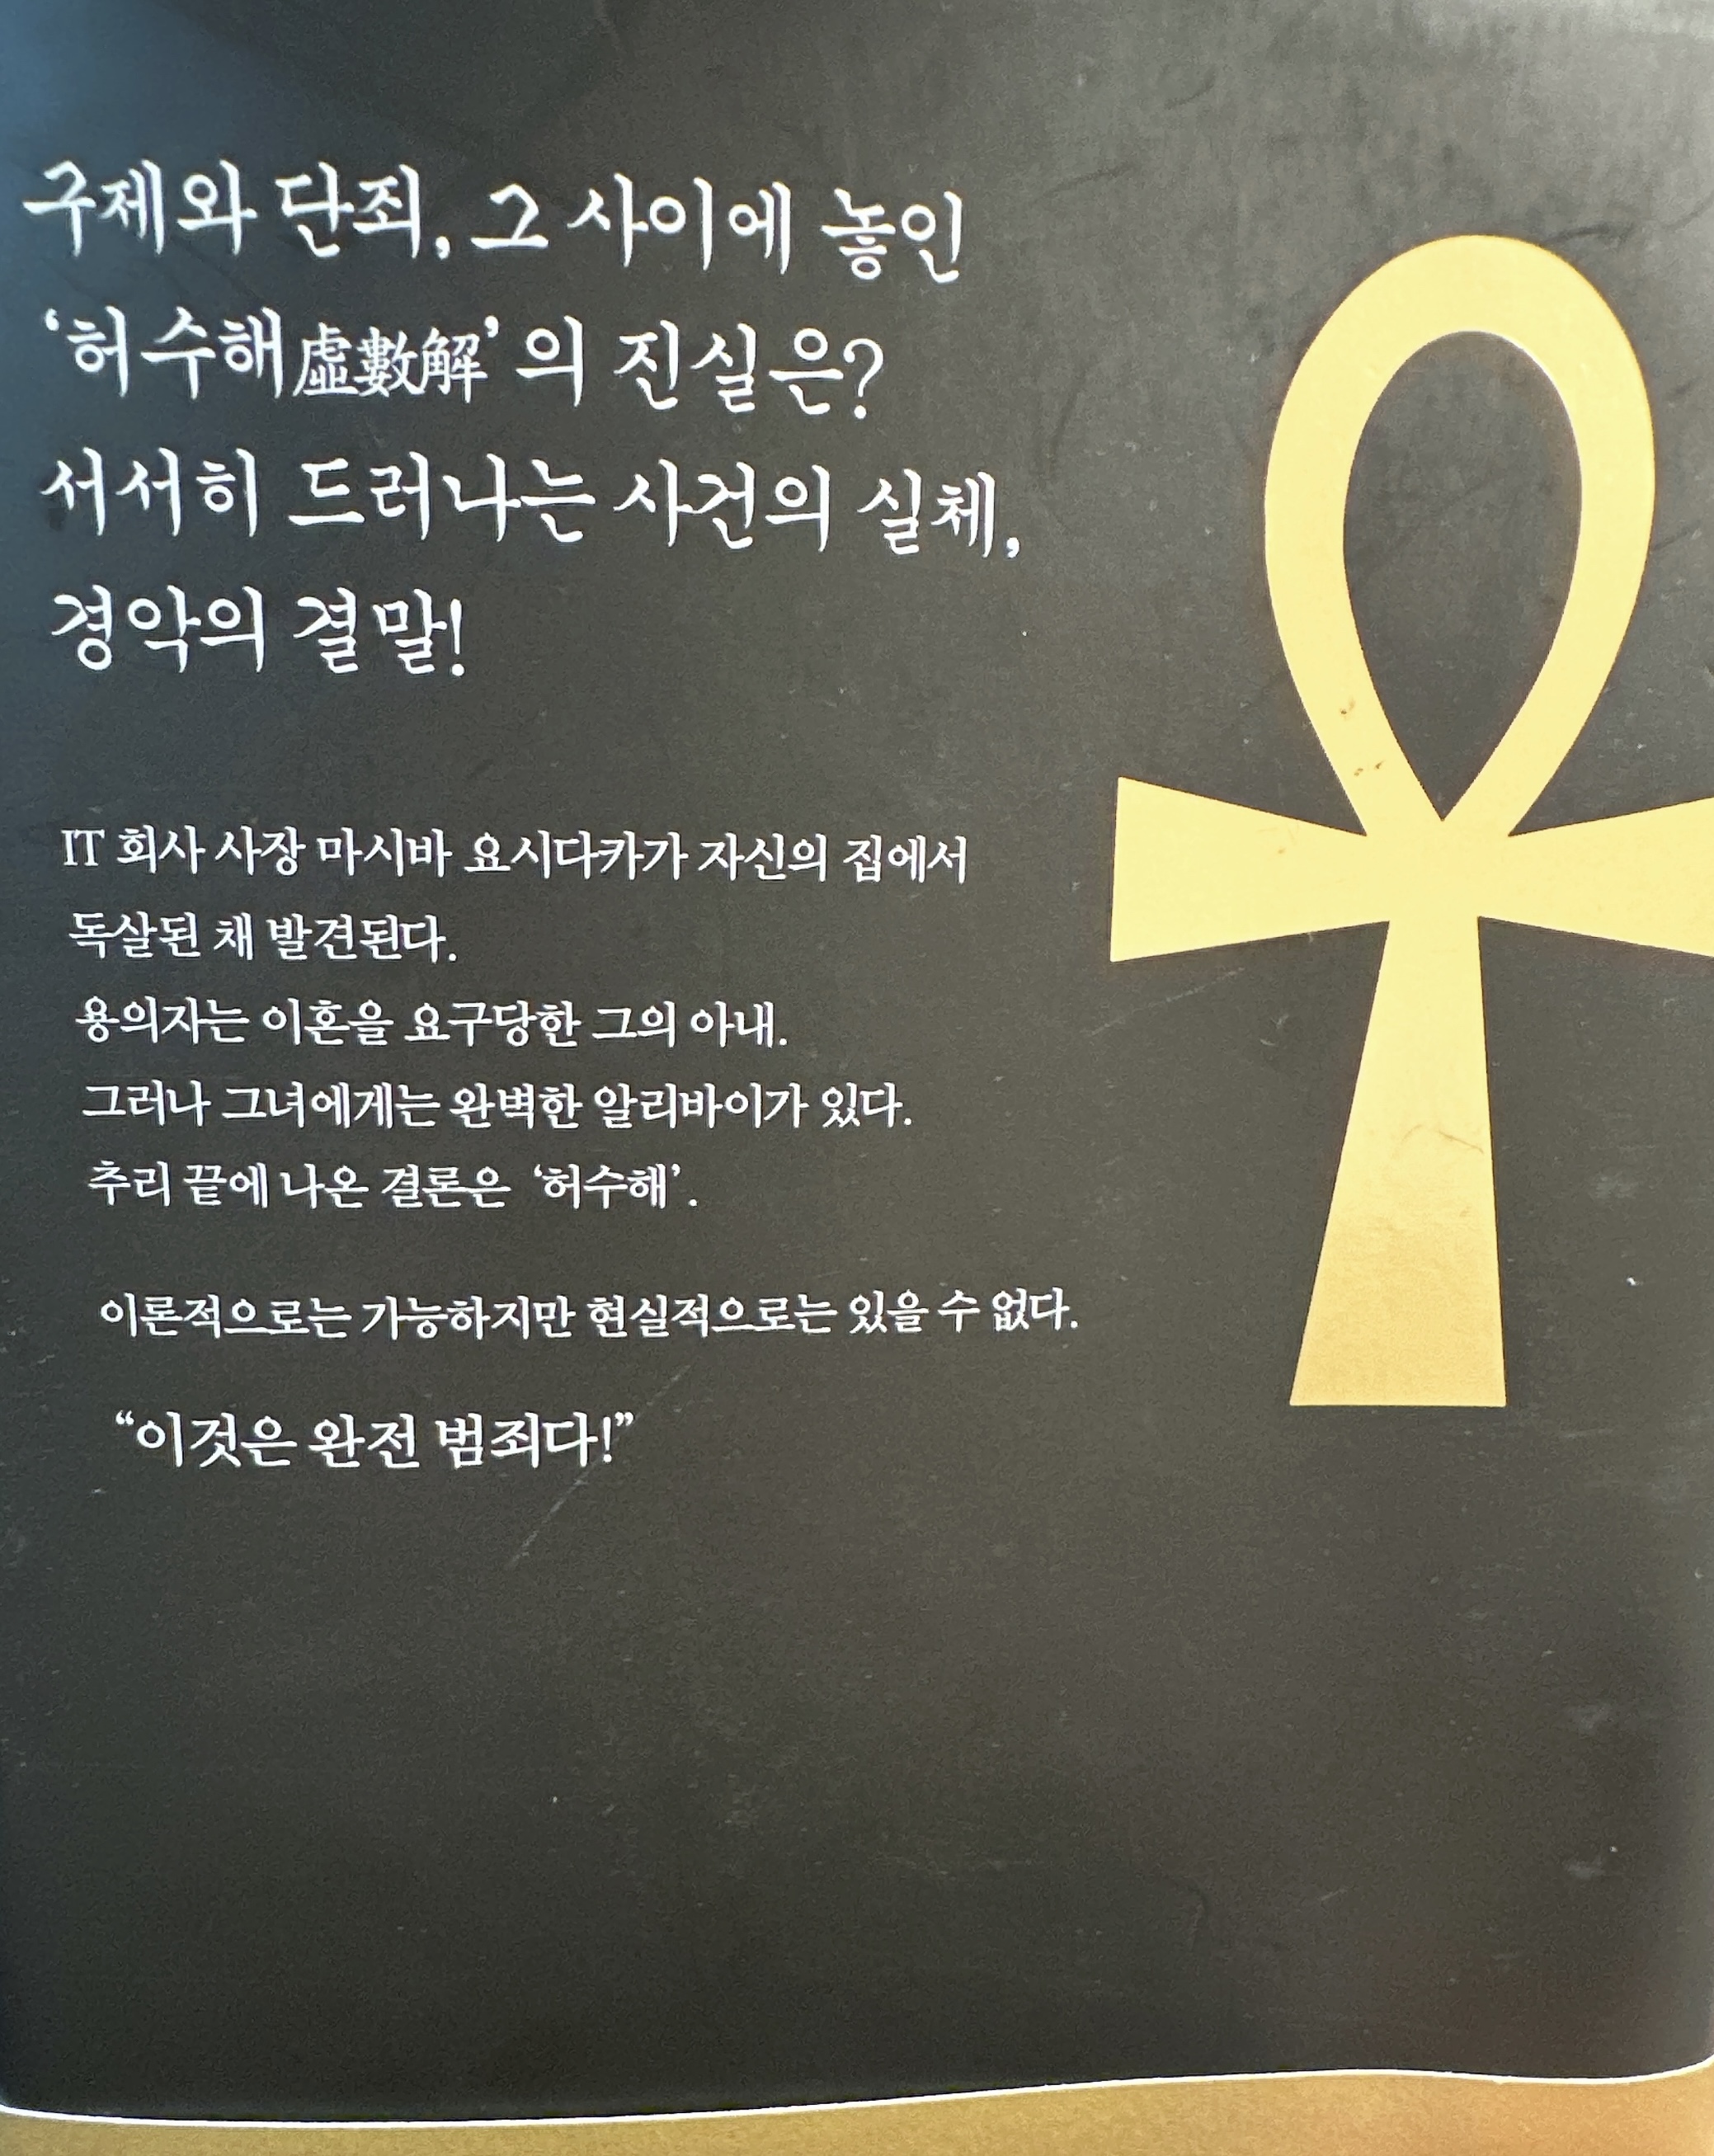 구제와 단죄, 그 사이에 놓인
‘허수해虛數解’의 진실은?
서서히 드러나는 사건의 실체,
경악의 결말!
IT 회사 사장 마시바 요시다카가 자신의 집에서
독살된 채 발견된다.
용의자는 이혼을 요구당한 그의 아내.
그러나 그녀에게는 완벽한 알리바이가 있다.
추리 끝에 나온 결론은 ‘허수해’.
이론적으로는 가능하지만 현실적으로는 있을 수 없다.
“이것은 완전 범죄다!”